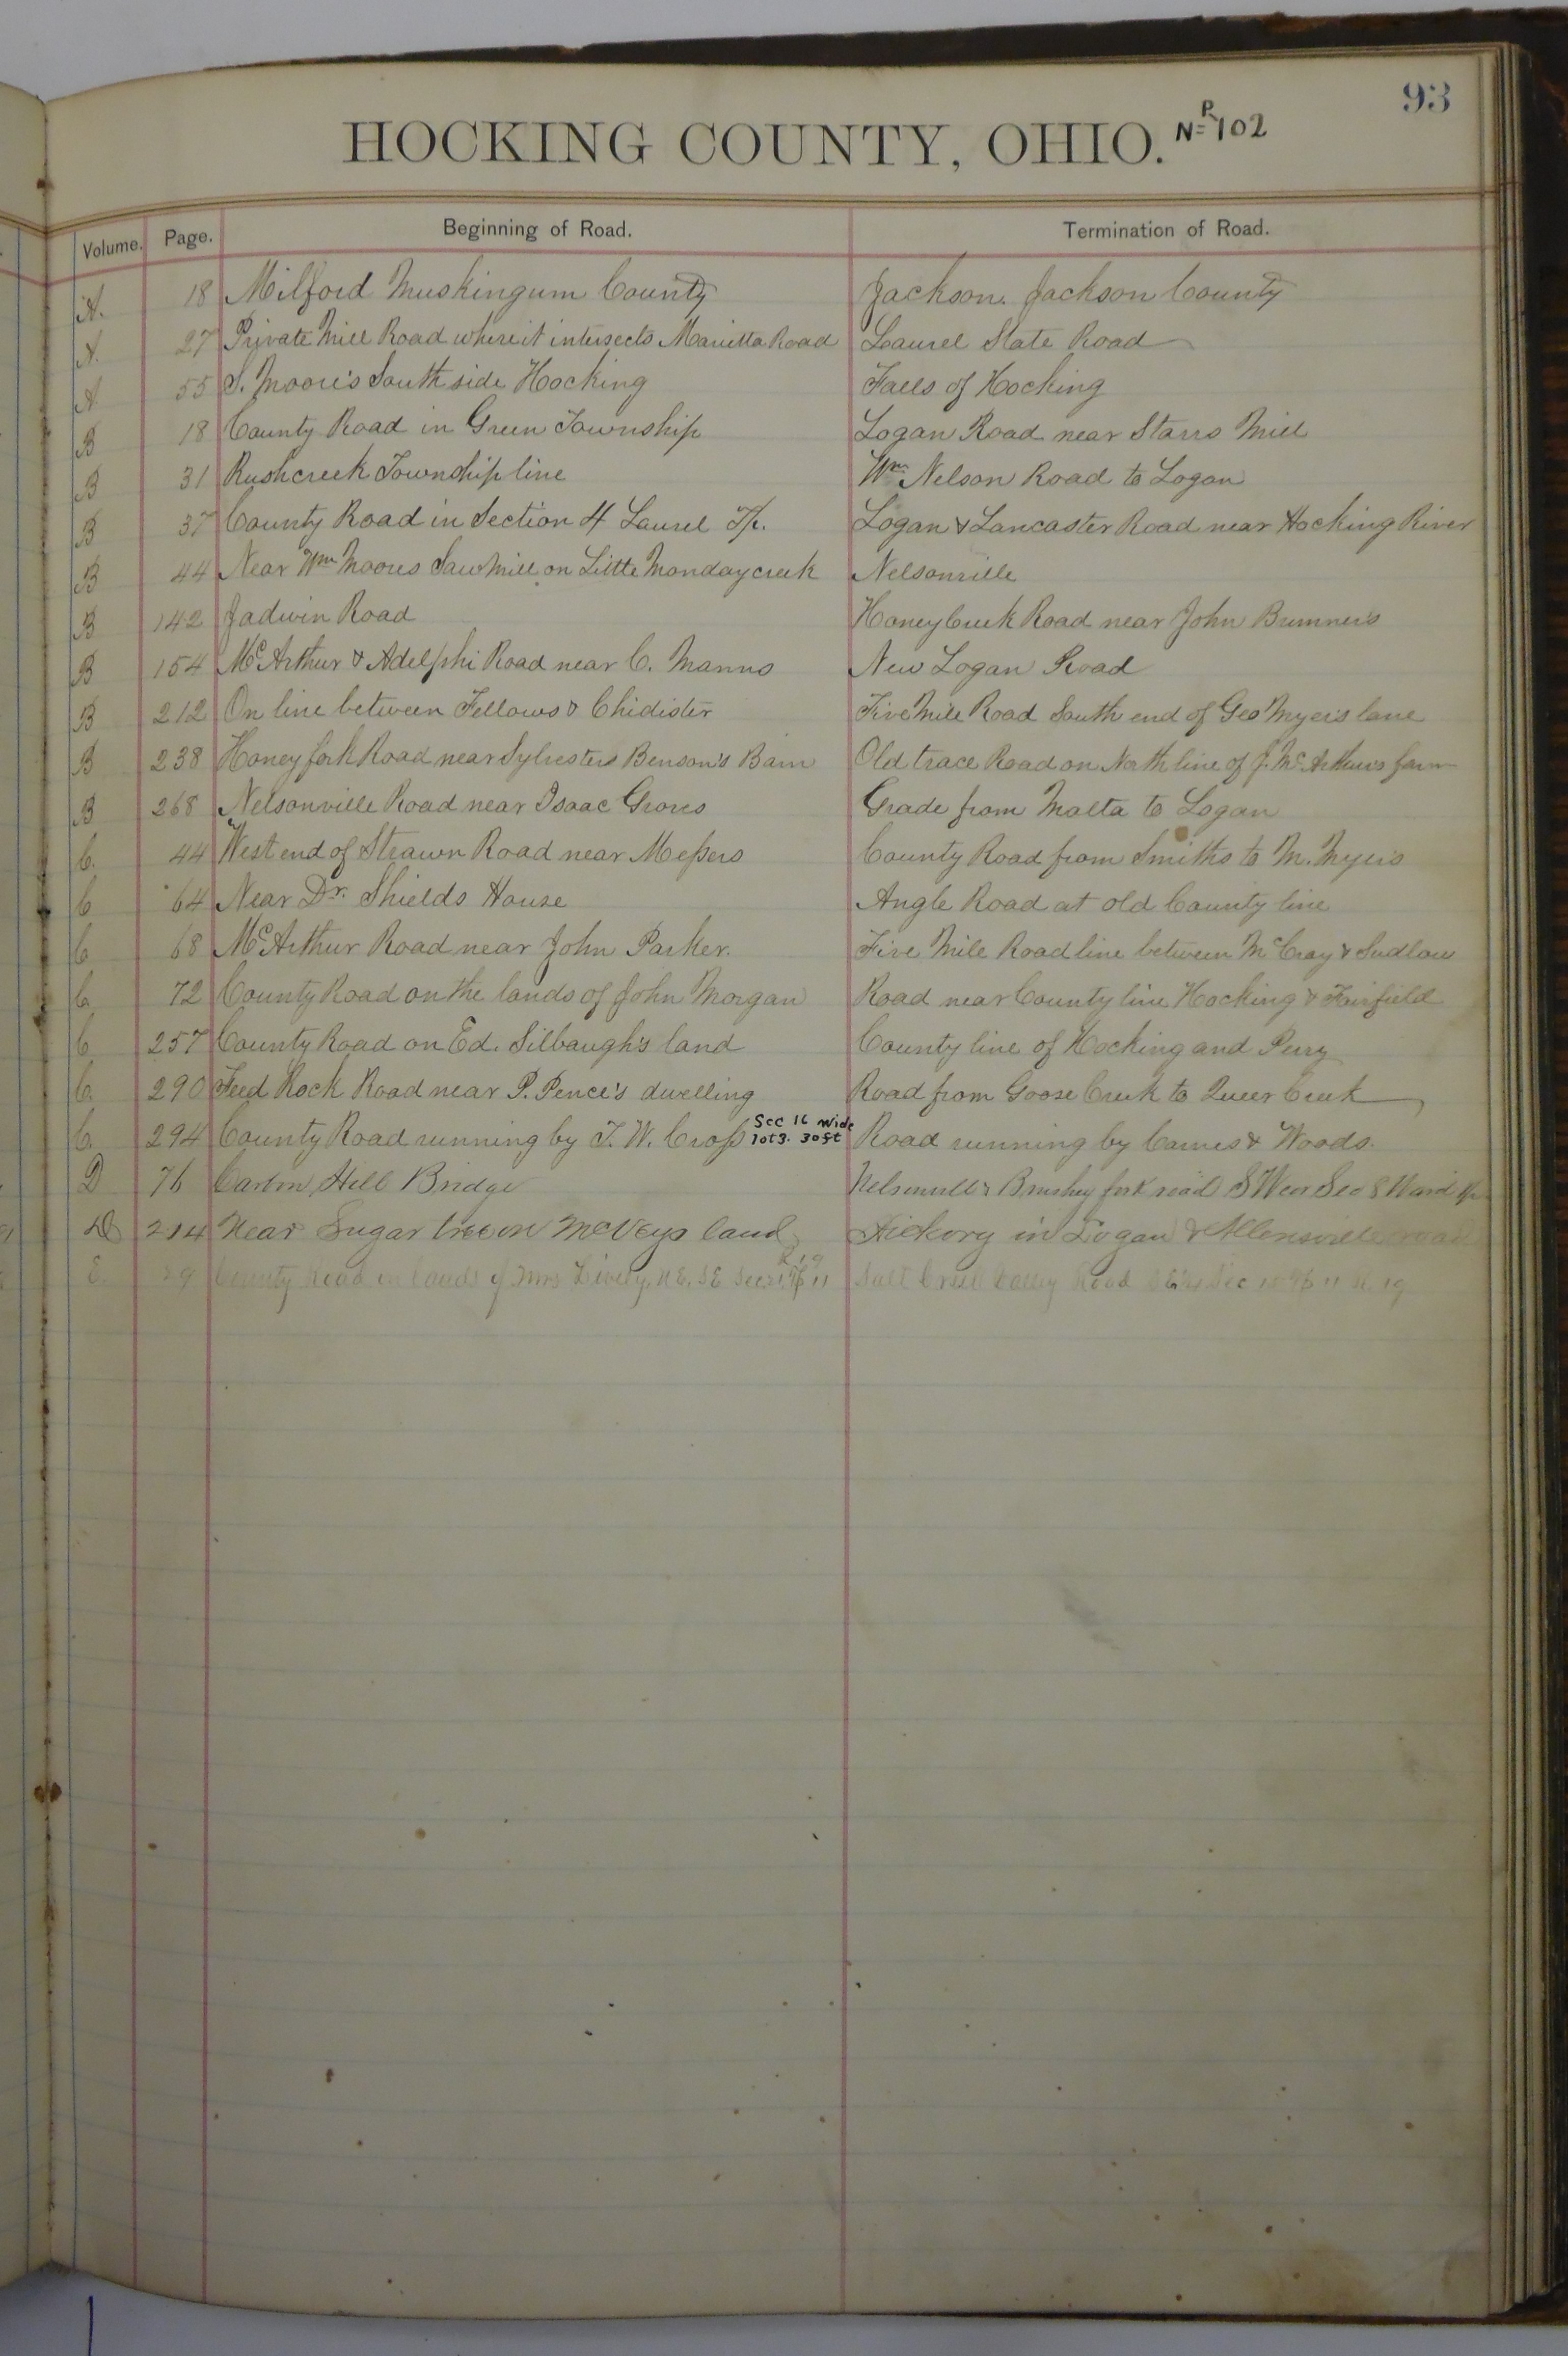 93
HOCKING COUNTY, OHIO. No P 102
Volume. Page. Beginning of Road. Termination of Road.
A. 18 Milford Muskingum County Jackson. Jackson County
A. 27 Private Mill Road where it intersects Marietta Road Laurel State Road
A 55 S. Moore's South side Hocking Falls of Hocking
B 18 County Road in Green Township Logan Road near Starrs Mill
B 31 Rushcreek Township line Wm Nelson Road to Logan
B 37 County Road in Section 4 Laurel Tp. Logan & Lancaster Road near Hocking River
B 44 Near Wm Moores Saw Mill on Little Monday creek Nelsonville
B 142 Jadwin Road Honey Creek Road near John Bumner's
B 154 McArthur & Adelphi Road near C. Manns New Logan Road
B 212 On line between Fellows & Chidister Five Mile Road South end of Geo Myers lane
B 238 Honey fork Road near Sylvesters Benson's Barn Old trace Road on North line of J. McArthurs farm
B 268 Nelsonville Road near Isaac Groves Grade from Malta to Logan
C. 44 West end of Strawn Road near Messers County Road from Smiths to M. Myers
C 64 Near Dr. Shields House Angle Road at old County line
C 68 McArthur Road near John Parker. Five Mile Road line between McCray & Sudlow
C. 72 County Road on the lands of John Morgan Road near County line Hocking & Fairfield
C. 257 County Road on Ed. Silbaugh's land County line of Hocking and Perry
C. 290 Feed Rock Road near P. Pence's dwelling Road from Goose Creek to Queer Creek
C. 294 County Road running by T. W. Cross Sec 16 wide lot 3. 30 ft Road running by Carnes & Woods.
D 76 Hill Bridge & Brushey fork road Sec 8 Ward
D 214 Near Sugar tree on McVeys land Hickory in Logan & Allensville road
E. 9 County Road on lands of Mrs Lively, N.E. S.E Sec Tp 11 Salt Creek Valley Road Sec Tp 11 R. 19